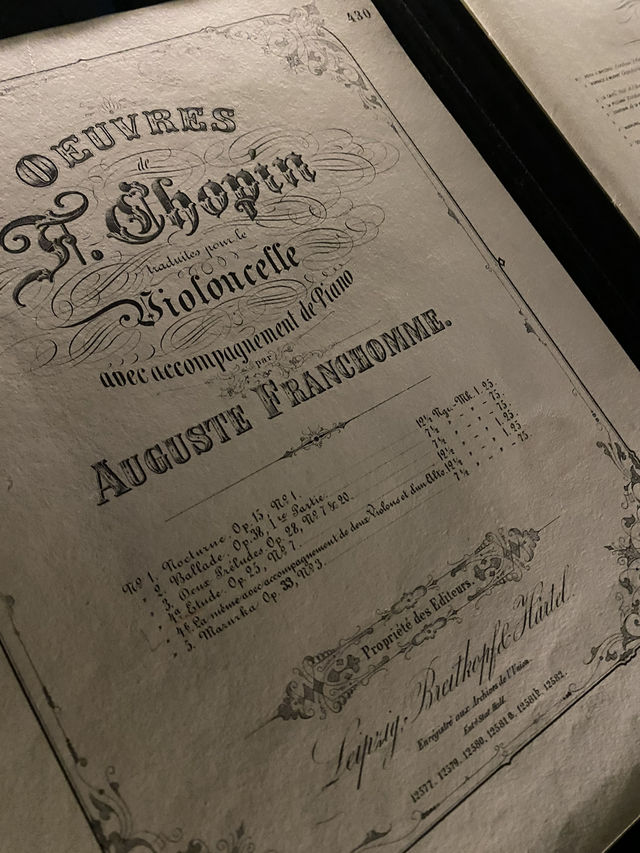 430
OEUVRES
de
F. Chopin
traduites pour le
Violoncelle
avec accompagnement de Piano
par
AUGUSTE FRANCHOMME.
No. 1. Nocturne. Op. 15, No. 1. 12½ Ngr. - Mk. 1. 25.
" 2. Ballade. Op. 38, 1re Partie. 7½ " - " - 75.
" 3. Deux Préludes Op. 28, No. 7 & 20. 7½ " - " - 75.
" 4a Etude. Op. 25, No. 7. 12½ " - " 1. 25.
" 4b La même avec accompagnement de deux Violons et d'un Alto. 12½ " - " 1. 25.
" 5. Mazurka Op. 33, No. 3. 7½ " - " - 75.
Propriété des Editeurs.
Leipzig, Breitkopf & Härtel.
Enregistré aux Archives de l'Union.
Ent. Stat. Hall.
12577. 12579. 12580. 12581a. 12581b. 12582.